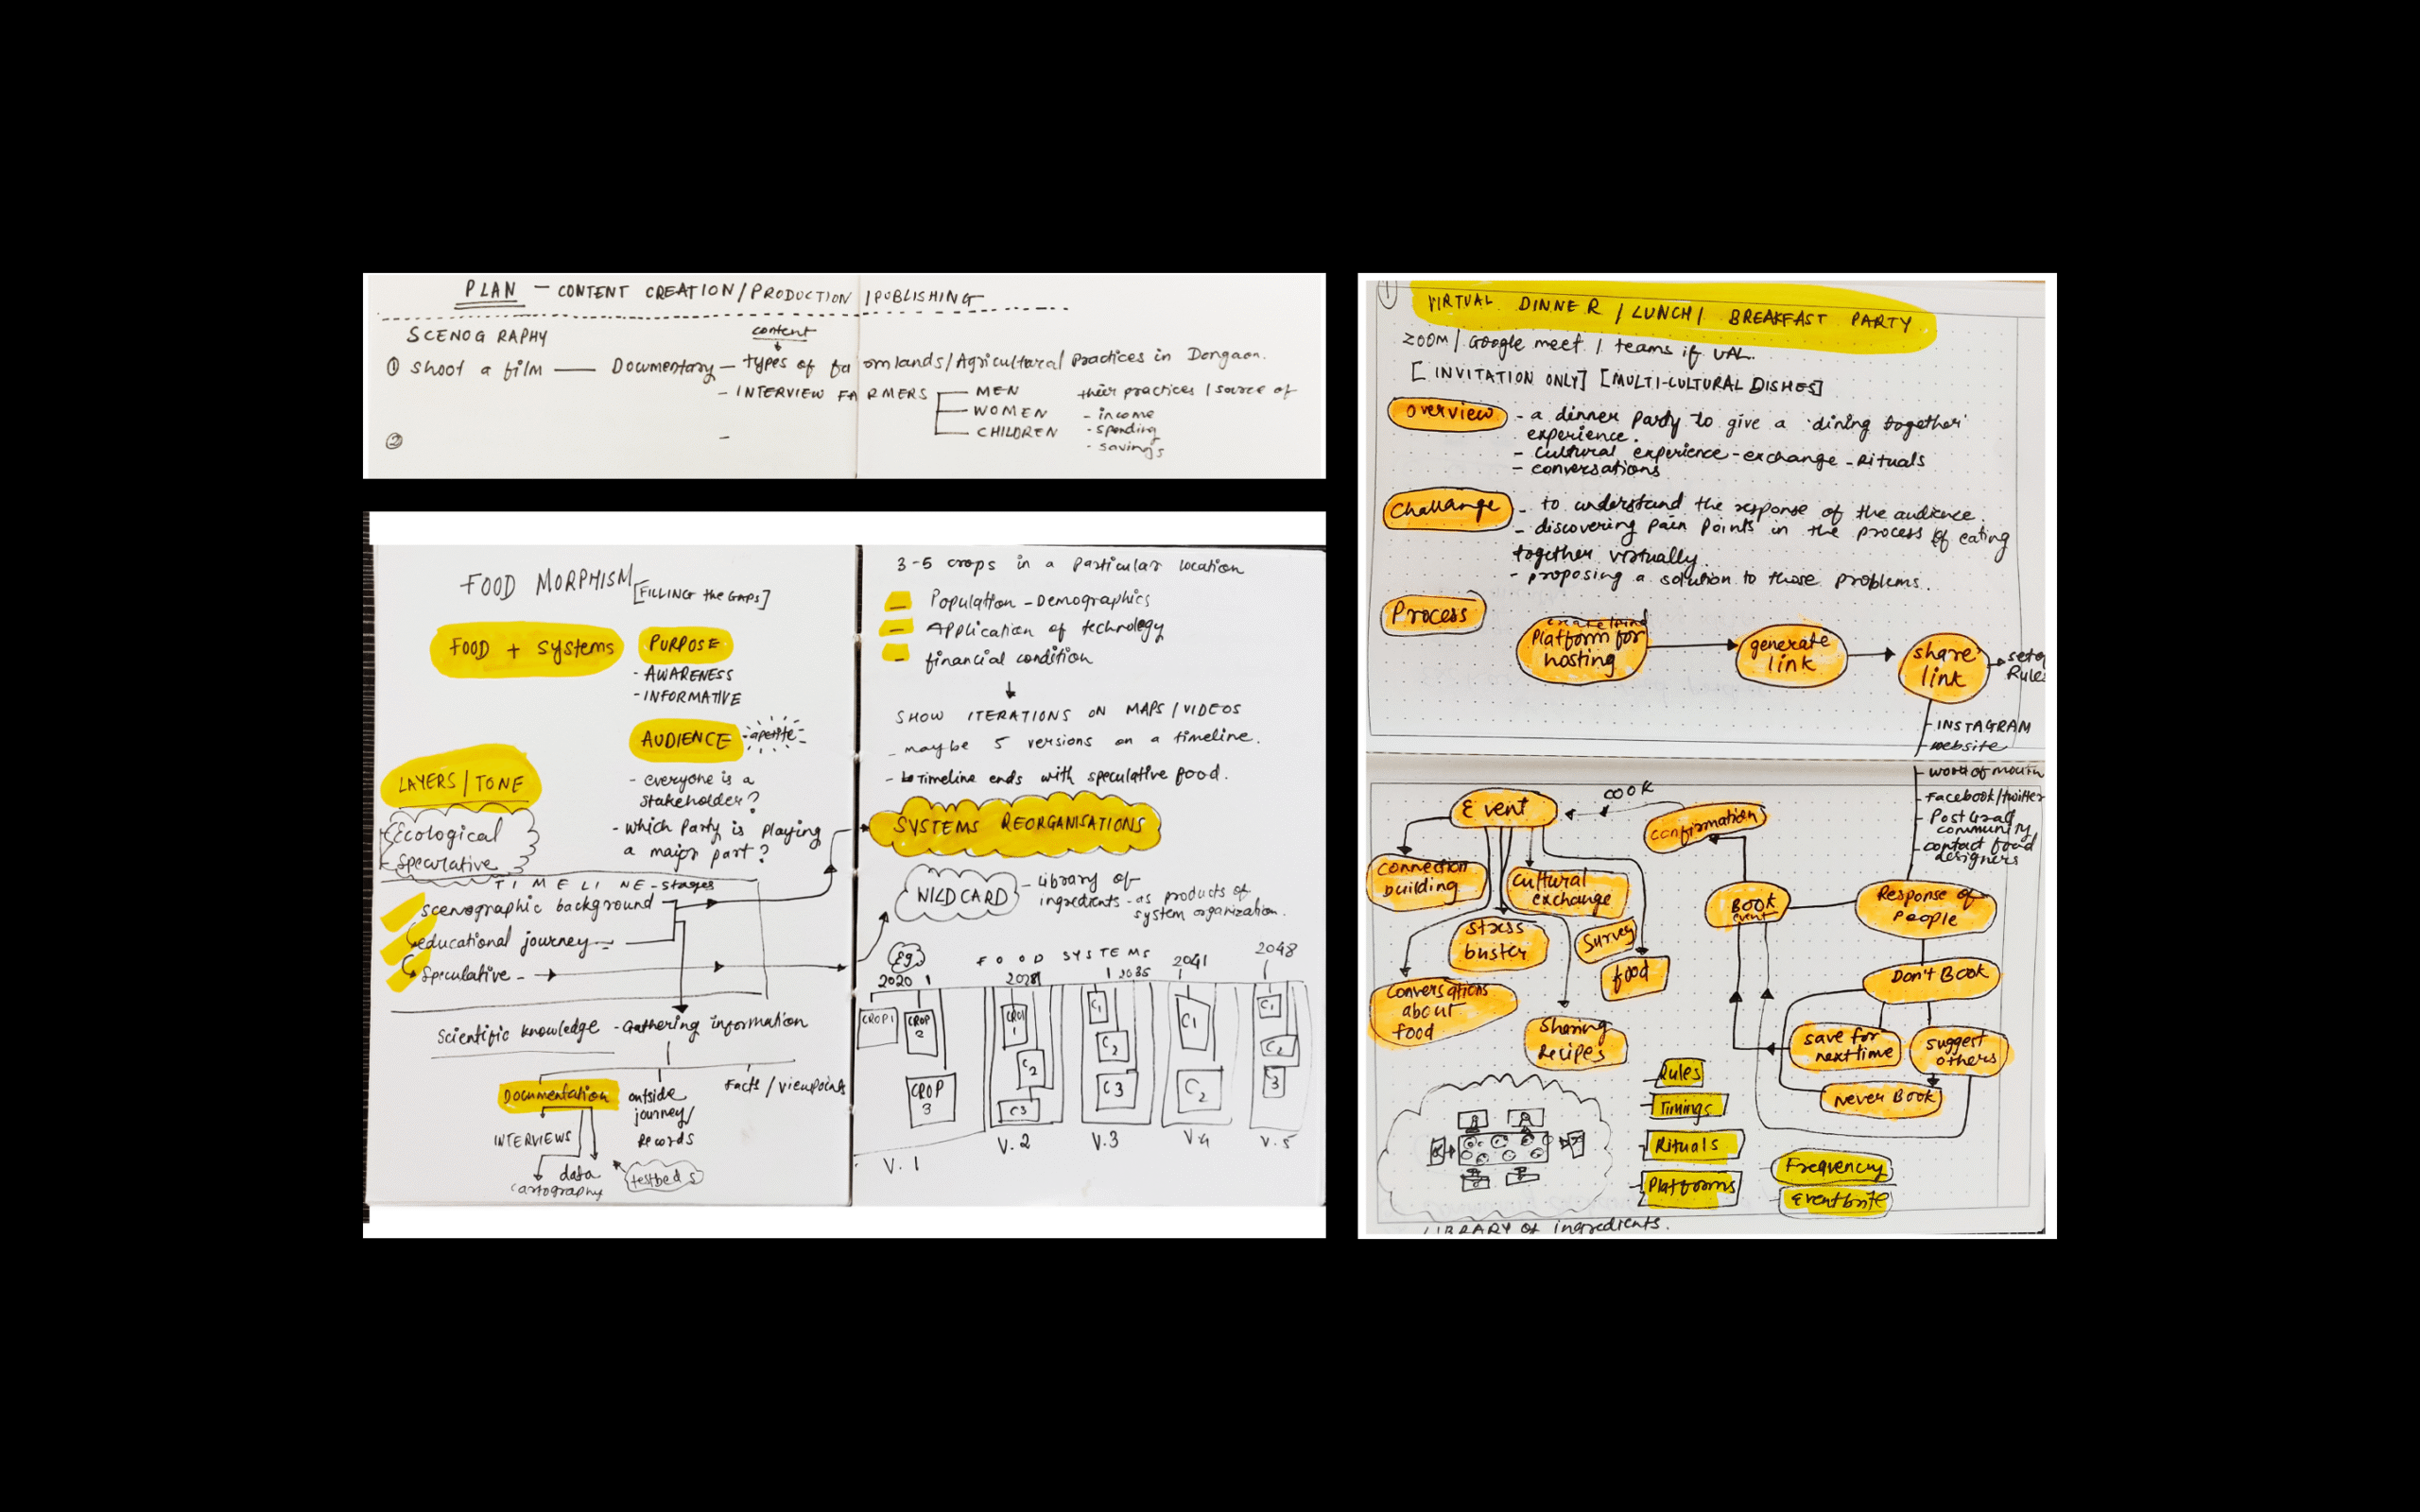 PLAN — CONTENT CREATION/PRODUCTION/PUBLISHING
SCENOGRAPHY
content
① Shoot a film — Documentary — types of farmlands/Agricultural Practices in Dongaon.
- INTERVIEW FARMERS
MEN
WOMEN
CHILDREN
their practices / source of
- income
- spending
- savings
②
FOOD MORPHISM [FILLING the GAPS]
FOOD + Systems
PURPOSE
- AWARENESS
- INFORMATIVE
AUDIENCE
LAYERS/TONE
- everyone is a
stakeholder?
- which party is playing
a major part?
Ecological
Speculative
TIMELINE - stages
scenographic background
educational journey
Speculative
Scientific knowledge - Gathering information
Documentation
outside
journey/
Records
Facts / viewpoints
INTERVIEWS
data
cartography
testbeds
3-5 crops in a Particular location
- Population - Demographics
- Application of technology
- financial condition
SHOW ITERATIONS ON MAPS/VIDEOS
- maybe 5 versions on a timeline.
- Timeline ends with speculative food.
SYSTEMS REORGANISATIONS
WILD CARD
- library of
ingredients - as products of
system organization.
Eg.
FOOD SYSTEMS
2020
2035
2041
2048
CROP 1
CROP 2
CROP 3
1
C2
C3
C1
C2
C3
C1
C2
C1
C2
3
V.1
V.2
V.3
V.4
V.5
①
VIRTUAL DINNER / LUNCH / BREAKFAST PARTY
ZOOM / Google meet / teams if UAL.
[INVITATION ONLY] [MULTI-CULTURAL DISHES]
Overview
- a dinner party to give a 'dining together'
experience.
- cultural experience - exchange - Rituals
- conversations
Challange
- to understand the response of the audience.
- discovering pain points in the process of eating
together virtually.
- proposing a solution to those problems.
Process
Platform for
hosting
generate
link
share
link
Rules
- INSTAGRAM
- website
- word of mouth
- Facebook/twitter
- Post Grad
community
- contact food
designers
Event
COOK
confirmation
Connection
building
Cultural
exchange
Book
event
Response of
People
Stress
buster
Survey
food
Don't Book
Conversations
about
food
Sharing
Recipes
save for
next time
suggest
others
Never Book
- Rules
- Timings
- Rituals
- Platforms
- Frequency
- Eventbrite
LIBRARY OF ingredients.